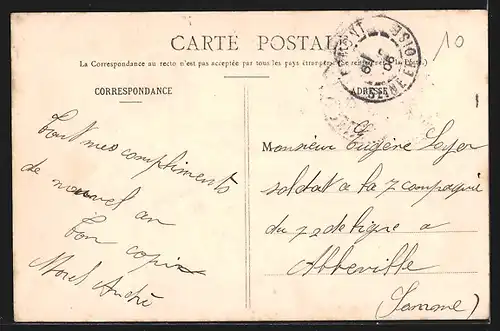 10
CARTE POSTALE
La Correspondance au recto n'est pas acceptée par tous les pays étrangers
SEINE ET OISE
CORRESPONDANCE
ADRESSE
Tout mes compliments
de nouvel an
Ton copin
Morel André
Monsieur Eugène Leger
soldat a la 7 compagnie
du 72 de ligne a
Abbeville
(Somme)